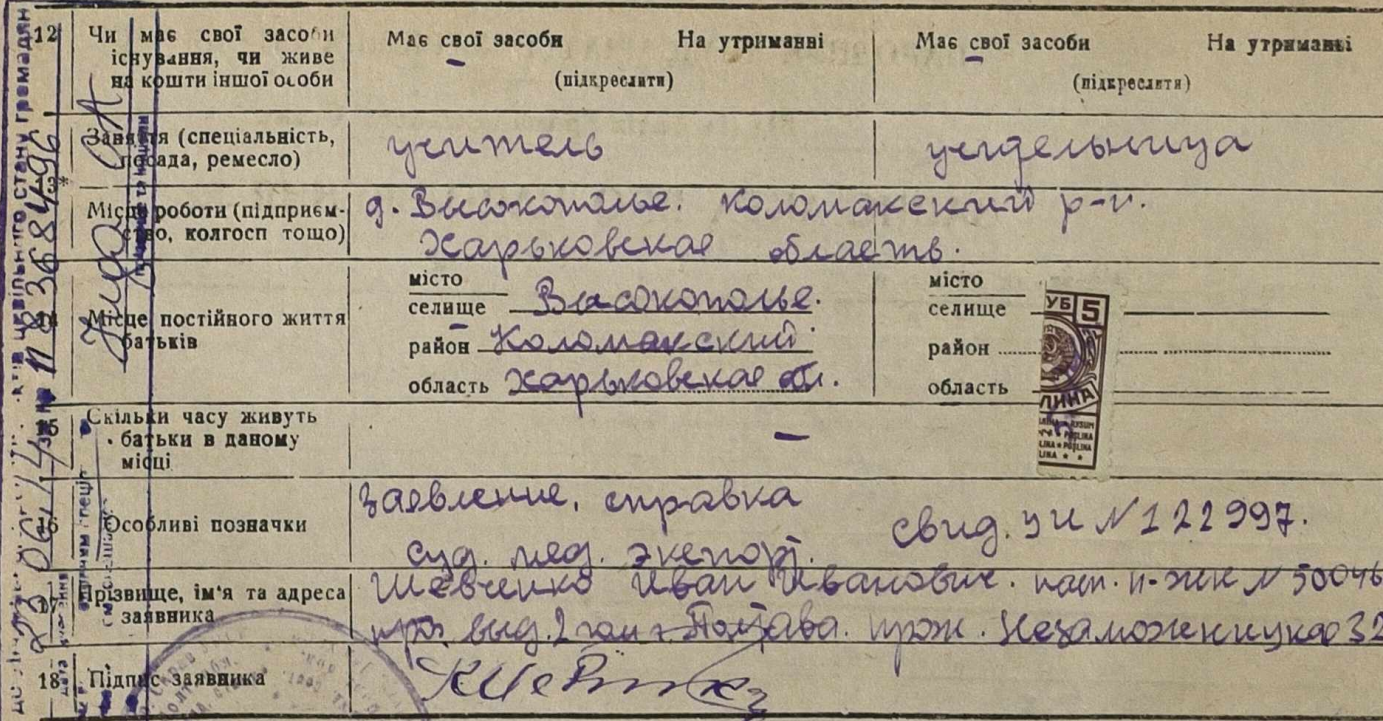 12 Чи має свої засоби існування, чи живе на кошти іншої особи
Має свої засоби На утриманні
(підкреслити)
Має свої засоби На утриманні
(підкреслити)
Заняття (спеціальність, посада, ремесло)
учитель
учительница
Місце роботи (підприємство, колгосп тощо)
д. Высокополье. Коломакский р-н.
Харьковская область.
14 Місце постійного життя батьків
місто
селище Высокополье.
район Коломакский
область Харьковская обл.
місто
селище
район
область
УБ 5
ЛИНА
15 Скільки часу живуть батьки в даному місці
–
16 Особливі позначки
Заявление, справка
суд. мед. эксперт.
свид. УИ №122997.
17 Прізвище, ім'я та адреса заявника
Шевченко Иван Иванович. пасп. № 50046
выд. 2 гом г. Полтава. прож. Незаможницкая 32
18 Підпис заявника
цивільного стану громадян